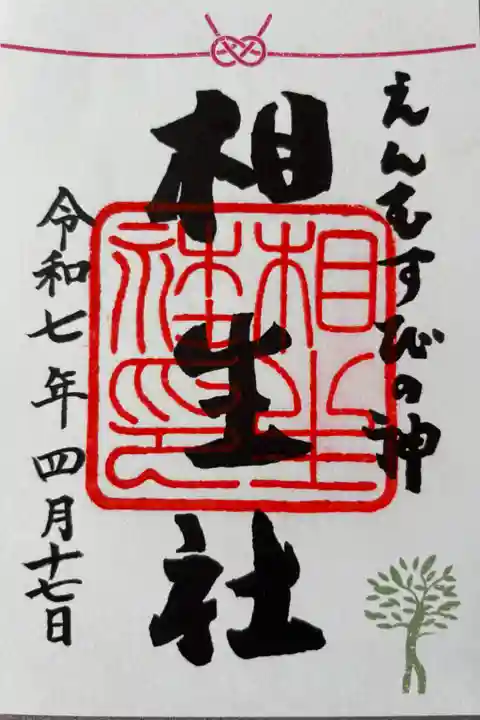 えんむすびの神
相生社
相生
社印
令和七年四月十七日